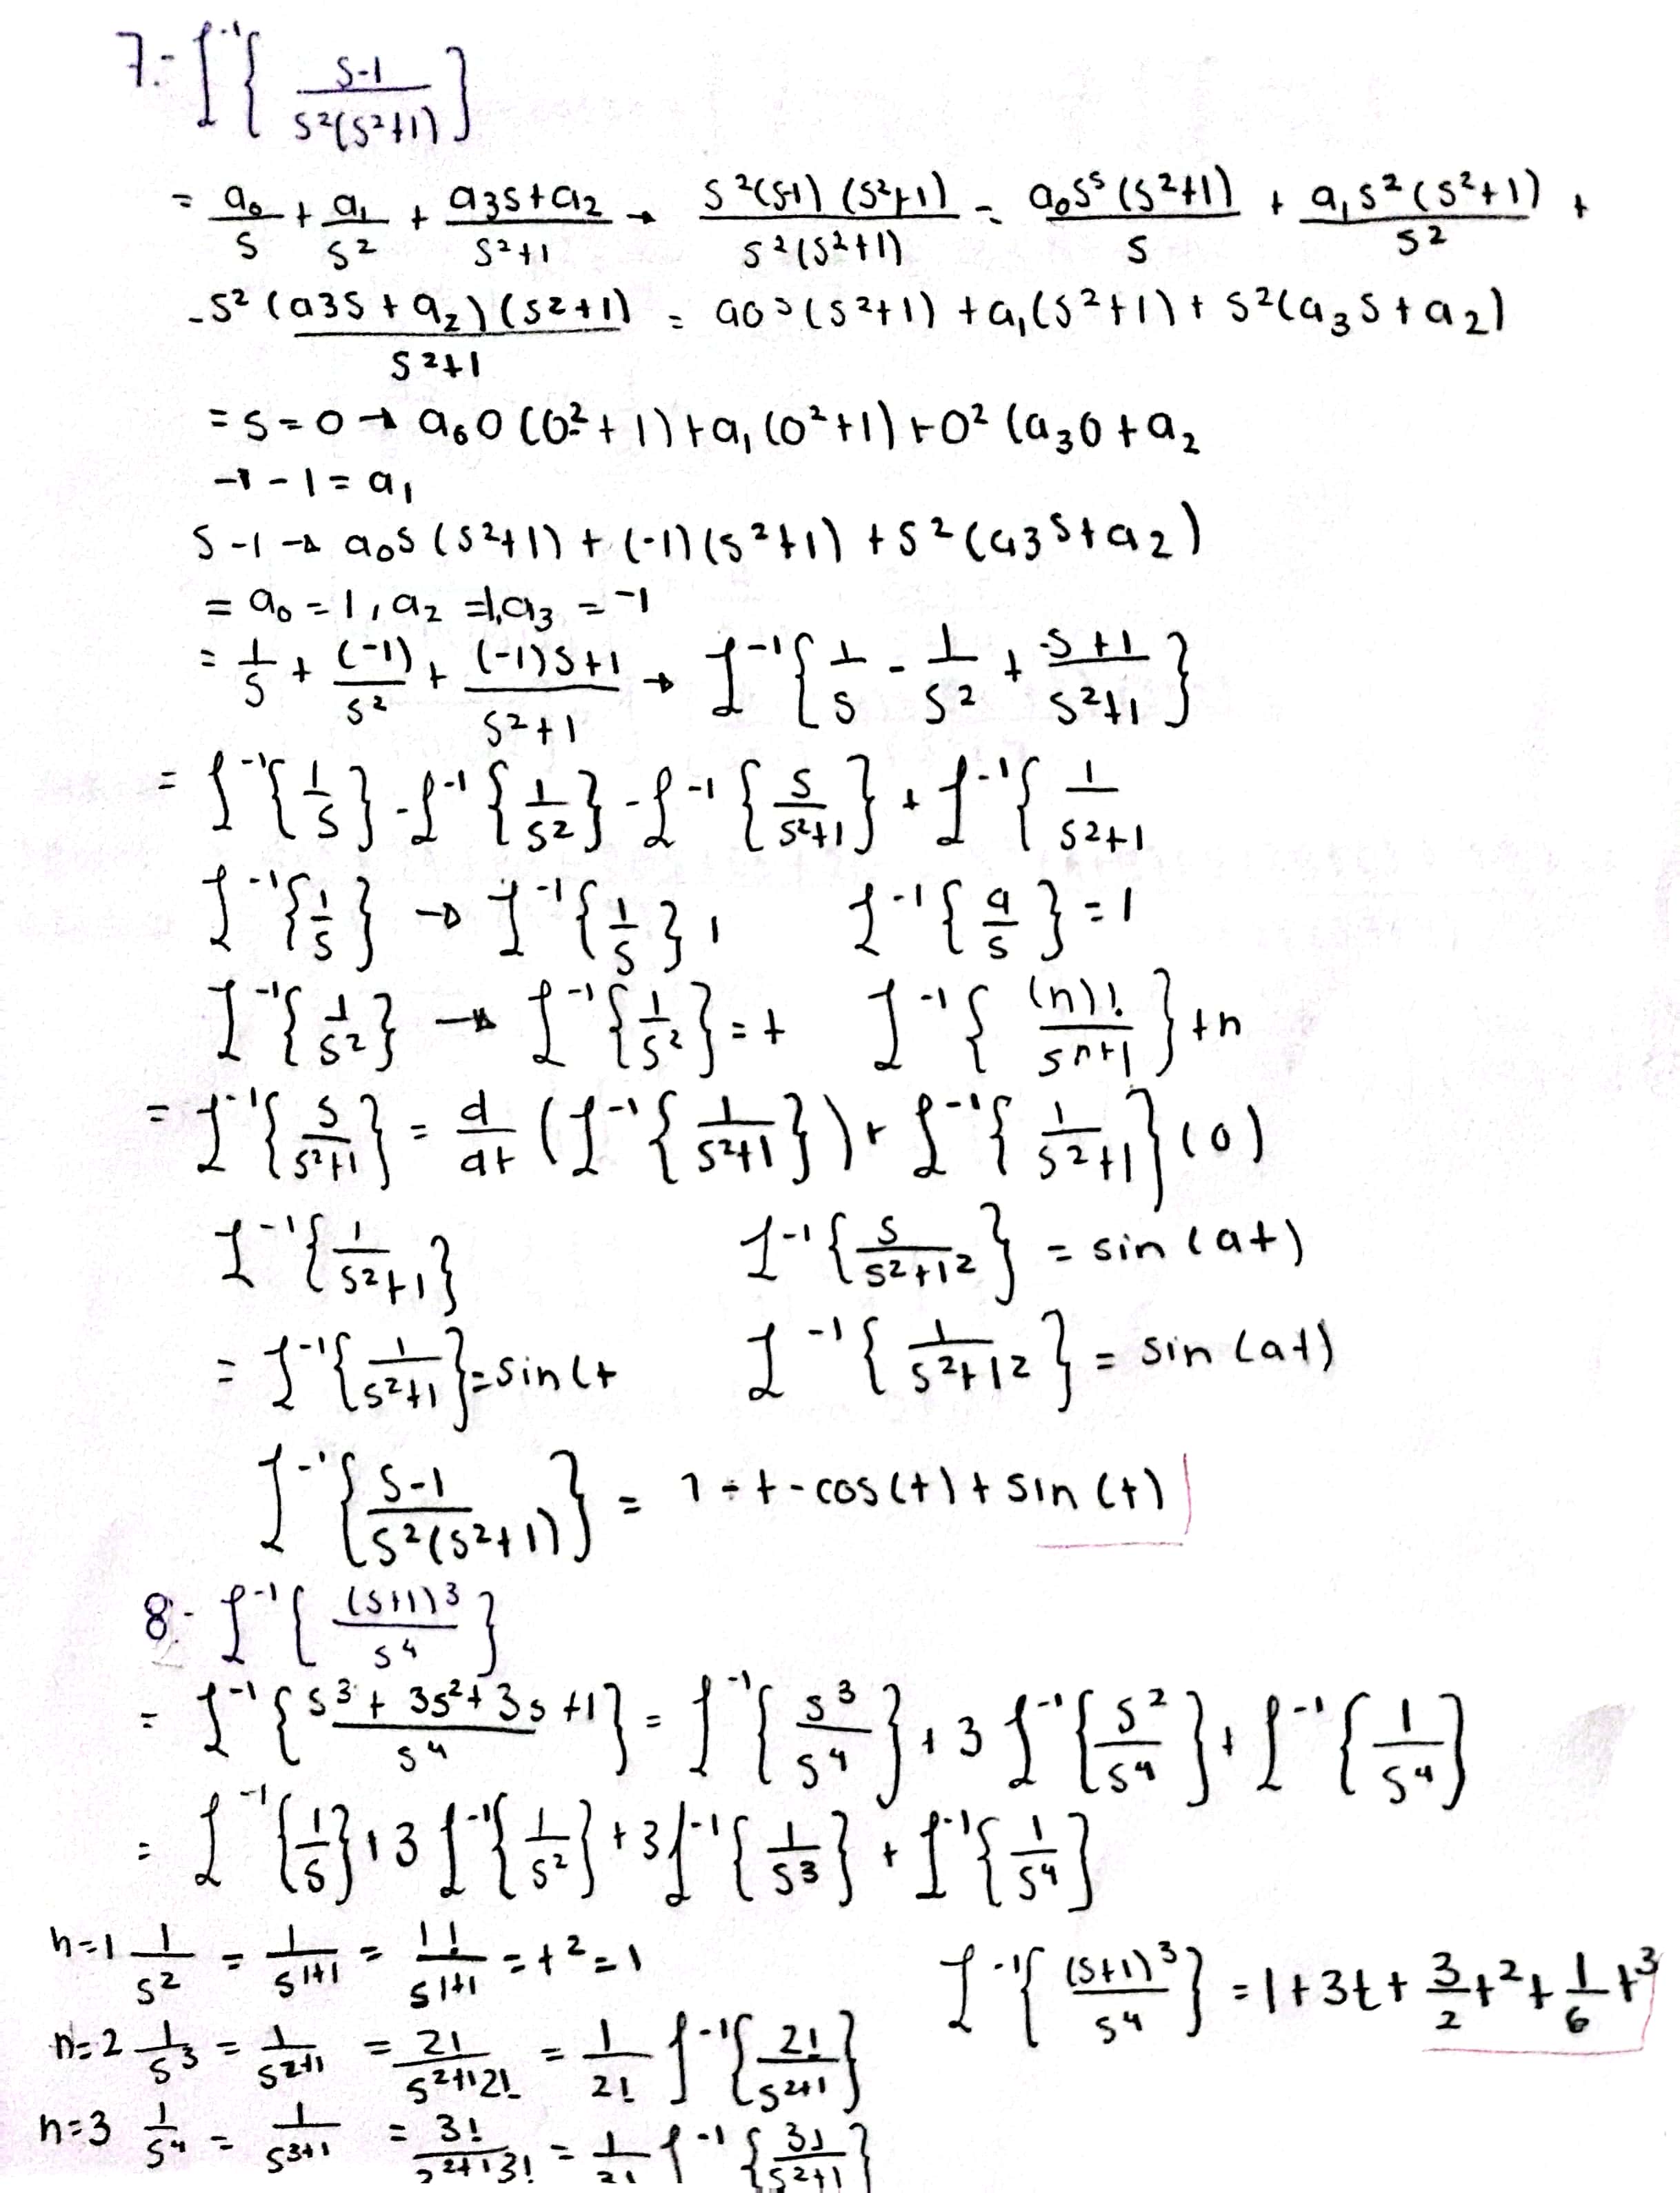 7.- ℒ⁻¹{ (s-1)/(s²(s²+1)) }
= a₀/s + a₁/s² + (a₃s+a₂)/(s²+1) → s²(s-1)(s²+1)/(s²(s²+1)) = a₀s⁵(s²+1)/s + a₁s²(s²+1)/s² +
-s²(a3s+a₂)(s²+1)/(s²+1) = a0s(s²+1) + a₁(s²+1) + s²(a₃s+a₂)
= s=0 → a₀0(0²+1) + a₁(0²+1) + 0²(a₃0+a₂
→ -1 = a₁
s-1 → a₀s(s²+1) + (-1)(s²+1) + s²(a3s+a₂)
= a₀=1, a₂=1, a₃=-1
= 1/s + (-1)/s² + ((-1)s+1)/(s²+1) → ℒ⁻¹{ 1/s - 1/s² + (-s+1)/(s²+1) }
= ℒ⁻¹{1/s} - ℒ⁻¹{1/s²} - ℒ⁻¹{s/(s²+1)} + ℒ⁻¹{ 1/(s²+1)
ℒ⁻¹{1/s} → ℒ⁻¹{1/s}, ℒ⁻¹{a/s} = 1
ℒ⁻¹{1/s²} → ℒ⁻¹{1/s²} = t ℒ⁻¹{ (n)!/sⁿ⁺¹ } tn
= ℒ⁻¹{s/(s²+1)} = d/dt (ℒ⁻¹{1/(s²+1)}) + ℒ⁻¹{1/(s²+1)}(0)
ℒ⁻¹{1/(s²+1)} ℒ⁻¹{s/(s²+1²)} = sin(at)
= ℒ⁻¹{1/(s²+1)} = sin(t ℒ⁻¹{1/(s²+1²)} = sin(at)
ℒ⁻¹{(s-1)/(s²(s²+1))} = 1 - t - cos(t) + sin(t)
8.- ℒ⁻¹{ (s+1)³/s⁴ }
= ℒ⁻¹{ (s³+3s²+3s+1)/s⁴ } = ℒ⁻¹{s³/s⁴} + 3ℒ⁻¹{s²/s⁴} + ℒ⁻¹{1/s⁴}
= ℒ⁻¹{1/s} + 3ℒ⁻¹{1/s²} + 3ℒ⁻¹{1/s³} + ℒ⁻¹{1/s⁴}
n=1 1/s² = 1/s¹⁺¹ = 1!/s¹⁺¹ = t² = 1
ℒ⁻¹{ (s+1)³/s⁴ } = 1+3t+ 3/2 t² + 1/6 t³
n=2 1/s³ = 1/s²⁺¹ = 2!/(s²⁺¹2!) = 1/2! ℒ⁻¹{2!/s²⁺¹}
n=3 1/s⁴ = 1/s³⁺¹ = 3!/(s²⁺¹3!) = 1/2! ℒ⁻¹{3!/s²⁺¹}